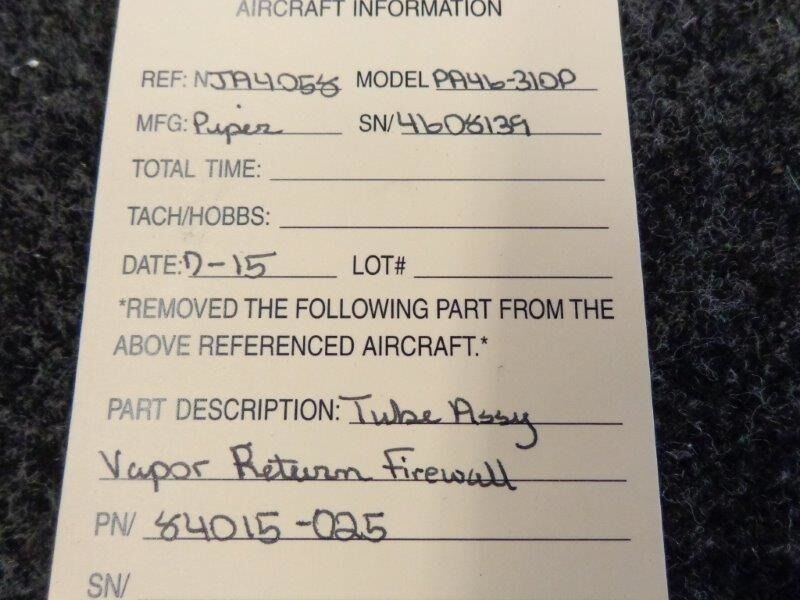 AIRCRAFT INFORMATION
REF: NJA4058 MODEL PA46-310P
MFG: Piper SN/ 4608139
TOTAL TIME:
TACH/HOBBS:
DATE: 7-15 LOT#
*REMOVED THE FOLLOWING PART FROM THE
ABOVE REFERENCED AIRCRAFT.*
PART DESCRIPTION: Tube Assy
Vapor Return Firewall
PN/ 84015-025
SN/